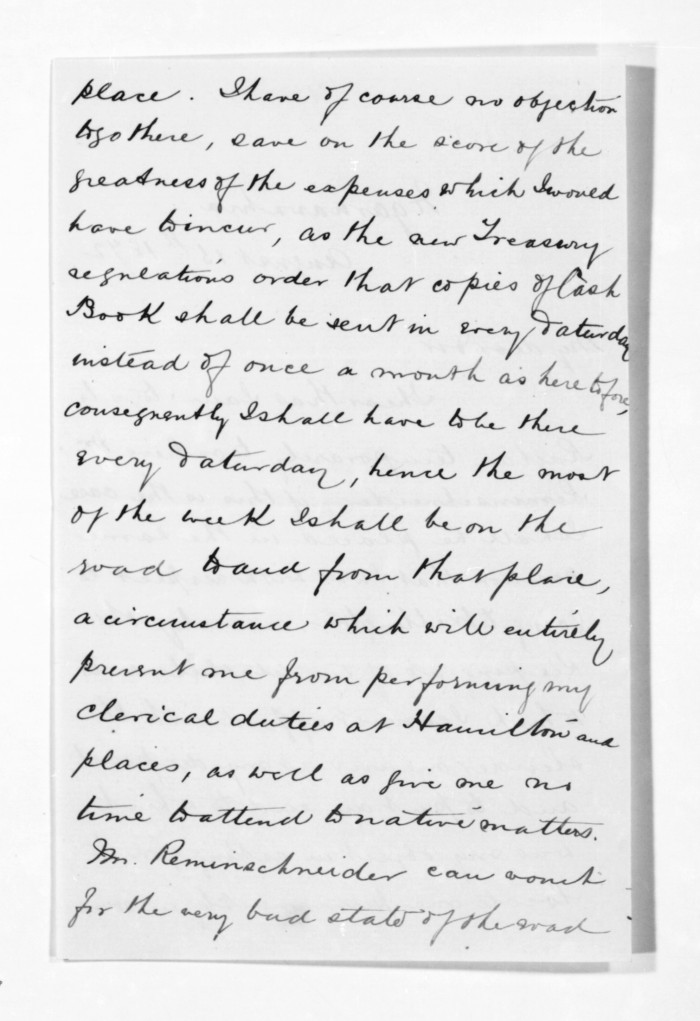 place. I have of course no objection
to go there, save on the score of the
greatness of the expenses which I would
have to incur, as the new Treasury
regulations order that copies of Cash
Book shall be sent in every Saturday
instead of once a month as heretofore,
consequently I shall have to be there
every Saturday, hence the most
of the week I shall be on the
road to and from that place,
a circumstance which will entirely
prevent me from performing my
clerical duties at Hamilton and
places, as well as give me no
time to attend to native matters.
Mr. Reminschneider can vouch
for the very bad state of the road